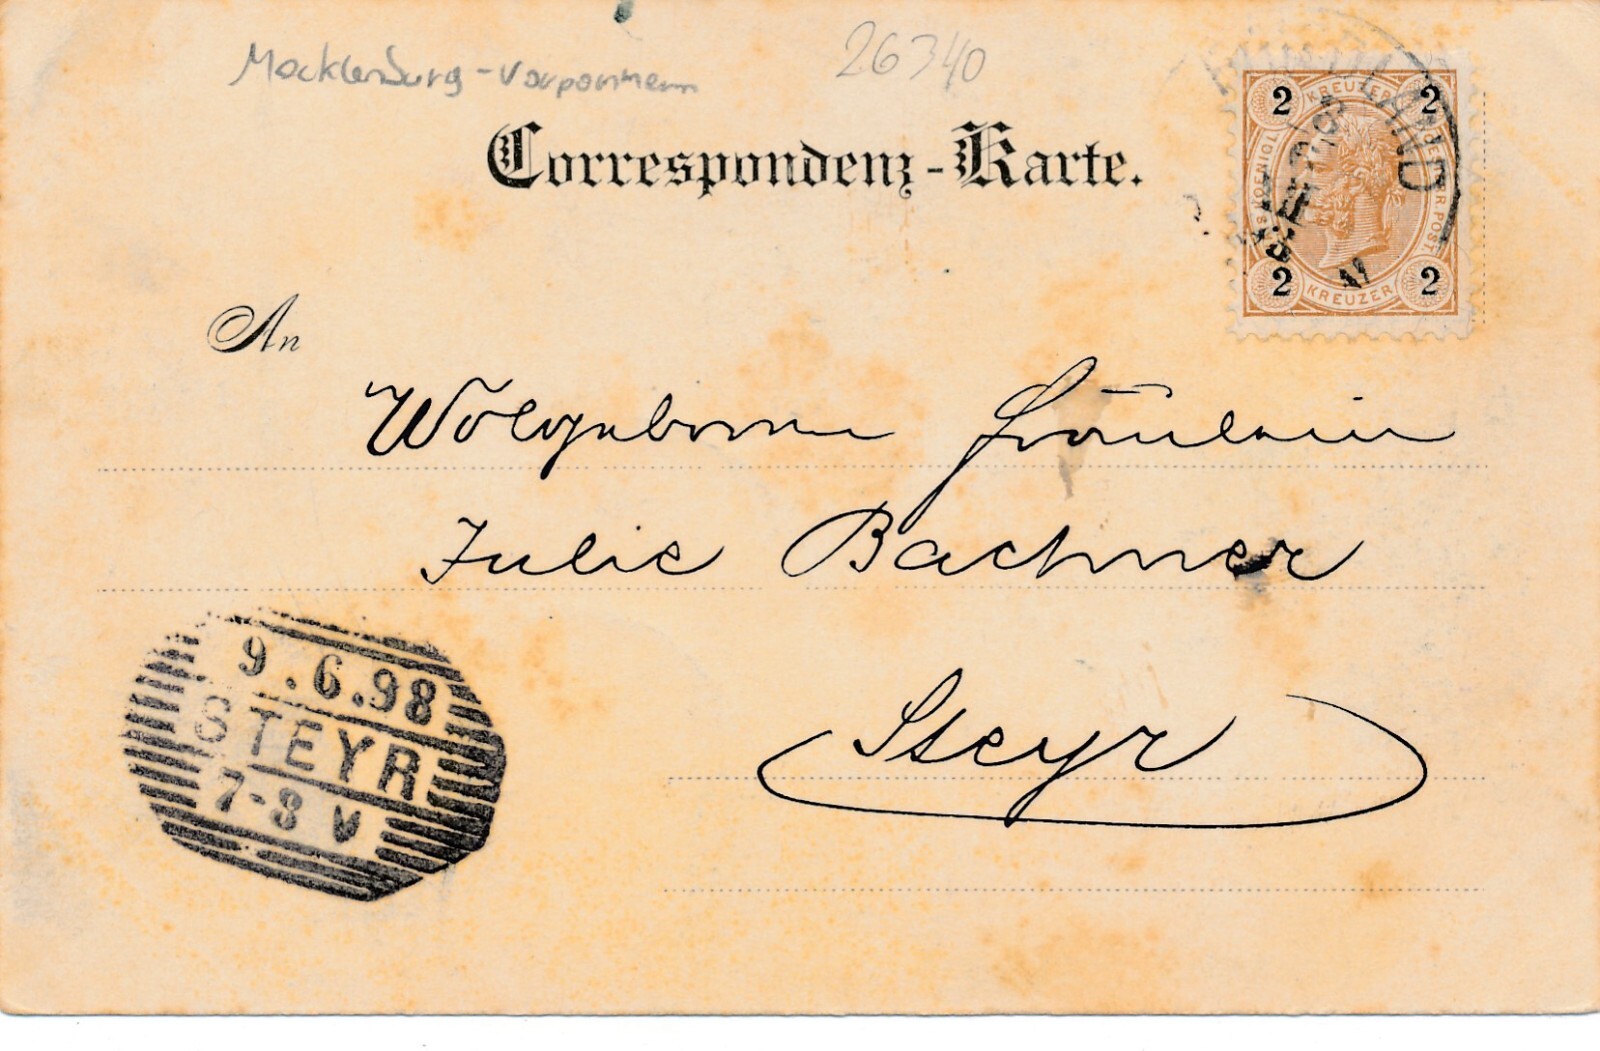 Mecklenburg-Vorpommern
26340
Correspondenz-Karte.
2 KREUZER 2
2 KREUZER 2
An
Wolgeborene Fräulein
Julie Bachner
Steyr
9.6.98
STEYR
7-8 V